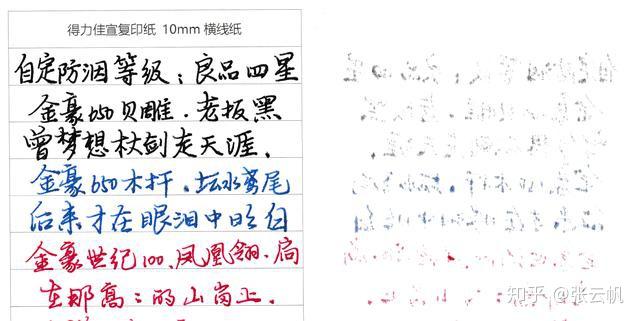 得力佳宣复印纸 10mm 横线纸
自定防洇等级：良品四星
金豪650贝雕．老板黑
曾梦想杖剑走天涯．
金豪650木杆．坛水鸢尾
后来才在眼泪中明白
金豪世纪100、凤凰翎．扃
在那高：的山岗上．
知乎 @张云帆